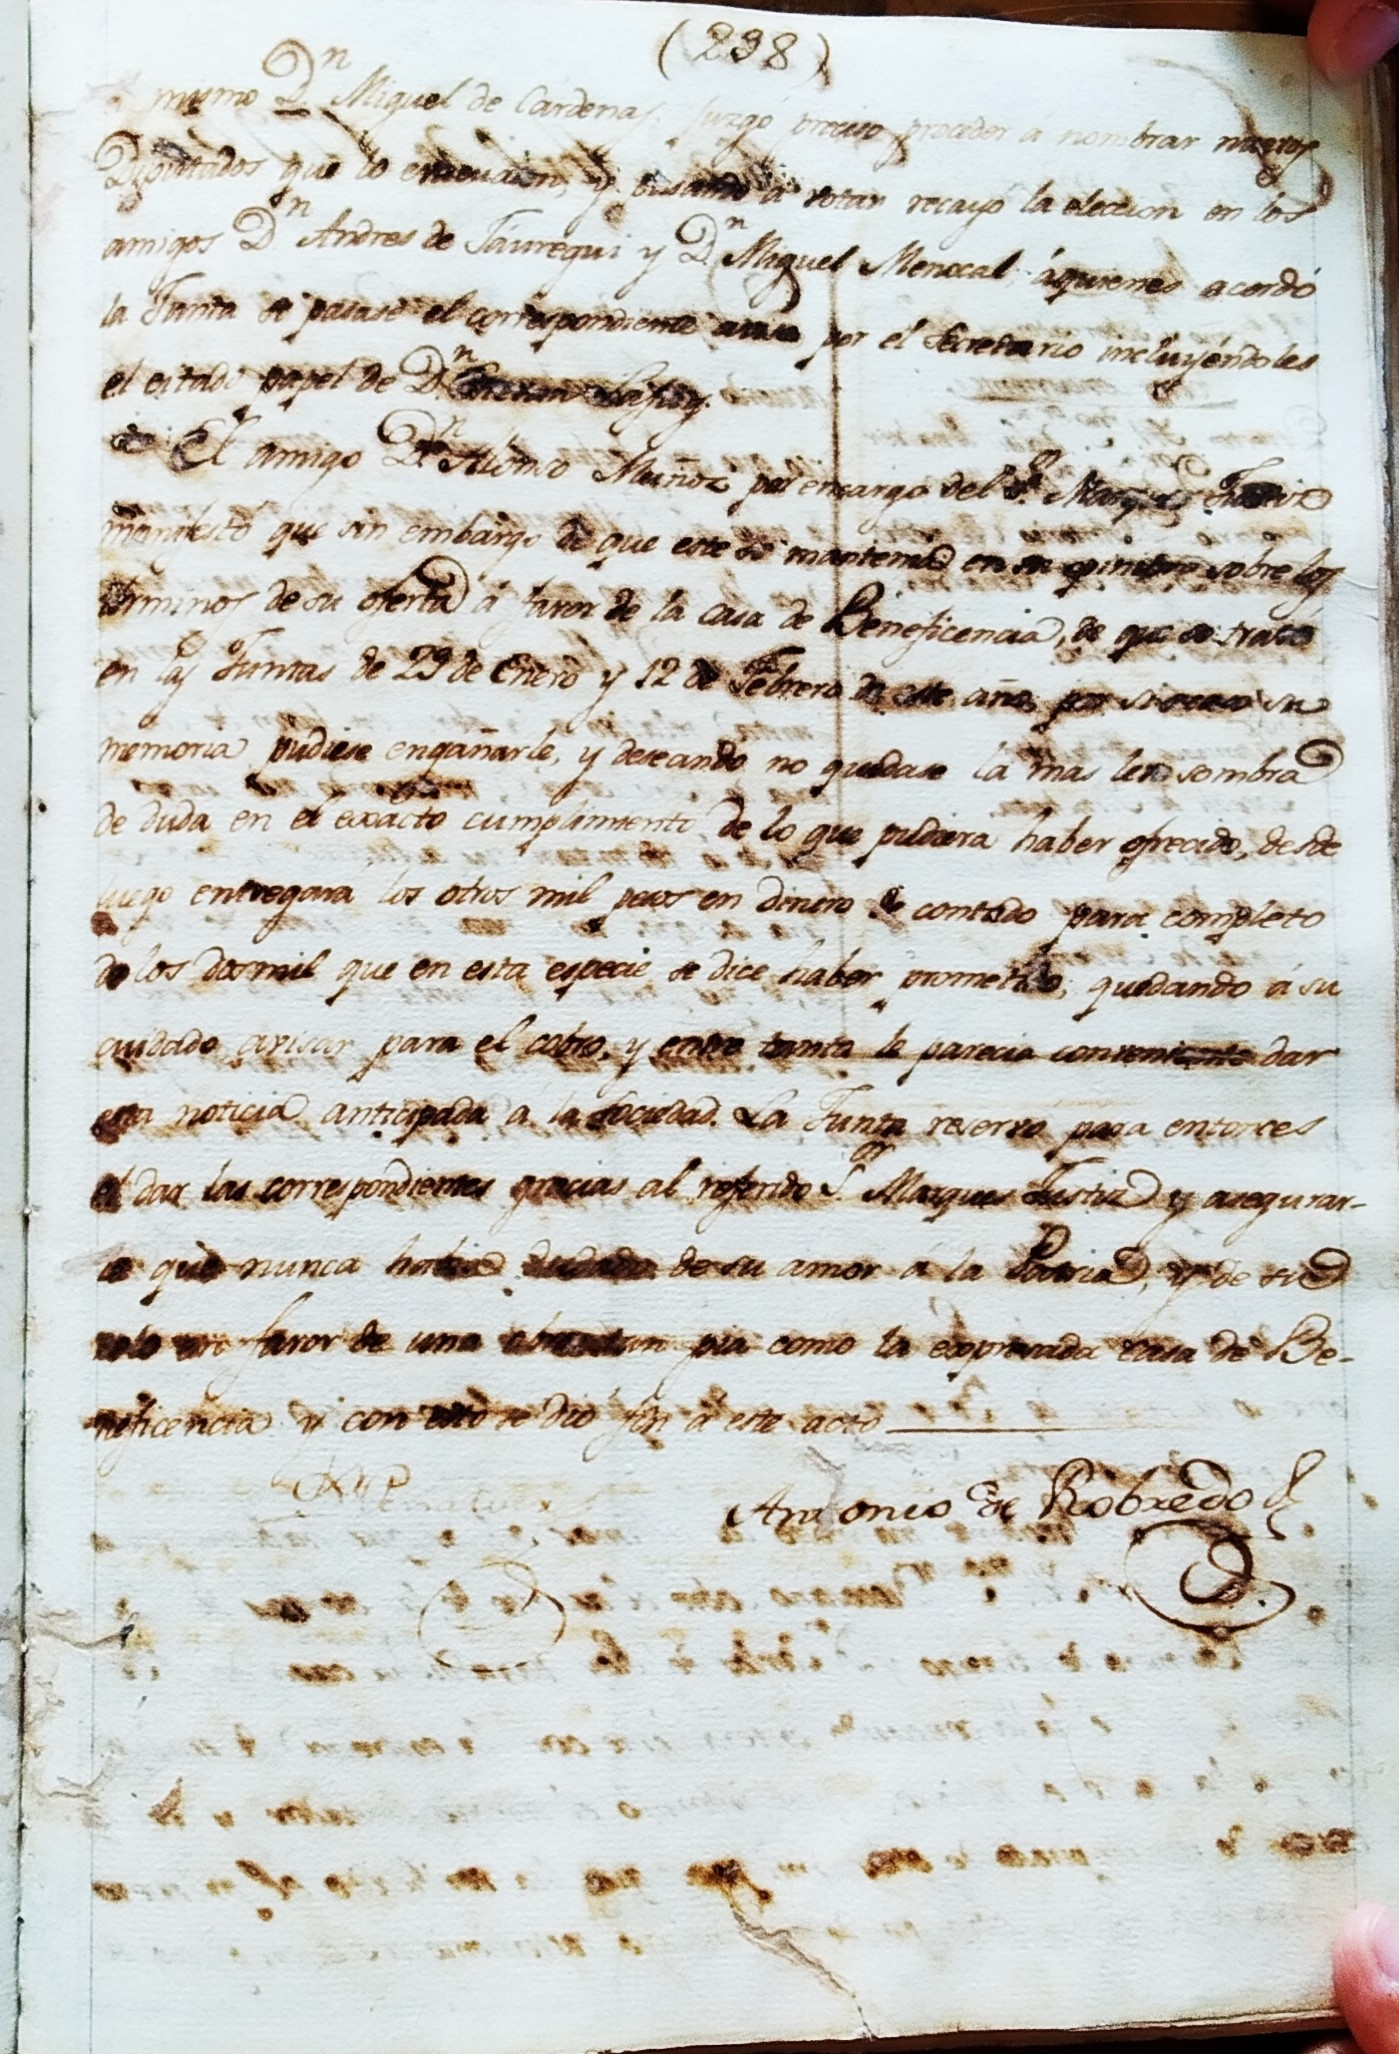 (238)
mismo Dn Miguel de Cardenas, juzgó preciso proceder á nombrar nuevos
Diputados que lo evacuasen, y á votar recayó la eleccion en los
amigos Dn Andres de Jáuregui y Dn Miguel Menocal áquienes acordó
la Junta se pasase el correspondiente aviso por el Secretario incluyéndoles
el citado papel de Dn
El amigo Dn Alonso Muñoz por encargo del Sor Marques Justiz
manifestó que sin embargo de que este se mantenia en su opinion sobre los
términos de su oferta á favor de la casa de Beneficencia, de que se trató
en las Juntas de 29 de Enero y 12 de Febrero de este año, por si acaso su
memoria pudiese engañarle, y deseando no quedase la mas leve sombra
de duda en el exacto cumplimiento de lo que pudiera haber ofrecido, desde
luego entregara los otros mil pesos en dinero de contado para completo
de los dosmil que en esta especie se dice haber prometido, quedando á su
cuidado avisar para el cobro, y entre tanto le parecia conveniente dar
esta noticia anticipada á la Sociedad. La Junta reservó para entonces
el dar las correspondientes gracias al referido Sor Marques Justiz y asegurar-
le que nunca habia dudado de su amor á la Patria, y de su
zelo en favor de una obra tan pia como la expresada casa de Be-
neficencia y con esto se dió fin á este acto
Antonio de Robredo